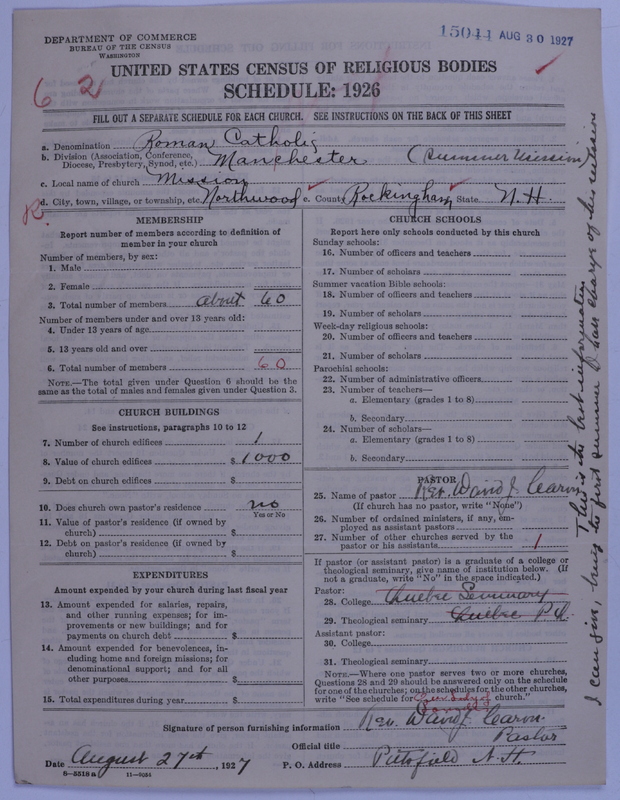 DEPARTMENT OF COMMERCE
BUREAU OF THE CENSUS
WASHINGTON
15044 AUG 30 1927
UNITED STATES CENSUS OF RELIGIOUS BODIES
SCHEDULE: 1926
6 2
FILL OUT A SEPARATE SCHEDULE FOR EACH CHURCH. SEE INSTRUCTIONS ON THE BACK OF THIS SHEET
a. Denomination Roman Catholic
b. Division (Association, Conference, Diocese, Presbytery, Synod, etc.) Manchester (Summer Mission)
c. Local name of church Mission
R. d. City, town, village, or township, etc. Northwood e. County Rockingham State N. H.
MEMBERSHIP
Report number of members according to definition of
member in your church
Number of members, by sex:
1. Male
2. Female
3. Total number of members about 60
Number of members under and over 13 years old:
4. Under 13 years of age
5. 13 years old and over
6. Total number of members 60
NOTE.—The total given under Question 6 should be the
same as the total of males and females given under Question 3.
CHURCH BUILDINGS
See instructions, paragraphs 10 to 12
7. Number of church edifices 1
8. Value of church edifices $ 1000
9. Debt on church edifices $
10. Does church own pastor's residence no
Yes or No
11. Value of pastor's residence (if owned by
church) $
12. Debt on pastor's residence (if owned by
church) $
EXPENDITURES
Amount expended by your church during last fiscal year
13. Amount expended for salaries, repairs,
and other running expenses; for im-
provements or new buildings; and for
payments on church debt $
14. Amount expended for benevolences, in-
cluding home and foreign missions; for
denominational support; and for all
other purposes $
15. Total expenditures during year $
CHURCH SCHOOLS
Report here only schools conducted by this church
Sunday schools:
16. Number of officers and teachers
17. Number of scholars
Summer vacation Bible schools:
18. Number of officers and teachers
19. Number of scholars
Week-day religious schools:
20. Number of officers and teachers
21. Number of scholars
Parochial schools:
22. Number of administrative officers
23. Number of teachers—
a. Elementary (grades 1 to 8)
b. Secondary
24. Number of scholars—
a. Elementary (grades 1 to 8)
b. Secondary
PASTOR
25. Name of pastor Rev. David J. Caron
(If church has no pastor, write "None")
26. Number of ordained ministers, if any, em-
ployed as assistant pastors
27. Number of other churches served by the
pastor or his assistants 1
If pastor (or assistant pastor) is a graduate of a college or
theological seminary, give name of institution below. (If
not a graduate, write "No" in the space indicated.)
Pastor:
28. College Quebec Seminary
29. Theological seminary Quebec P.Q.
Assistant pastor:
30. College
31. Theological seminary
NOTE.—Where one pastor serves two or more churches,
Questions 28 and 29 should be answered only on the schedule
for one of the churches; on the schedules for the other churches,
write "See schedule for church."
Signature of person furnishing information Rev. David J. Caron
Official title Pastor
Date August 27th, 1927 P. O. Address Pittsfield N. H.
8—5518 a 11—9054
This is the best information
I can give, being the first summer I have charge of this mission